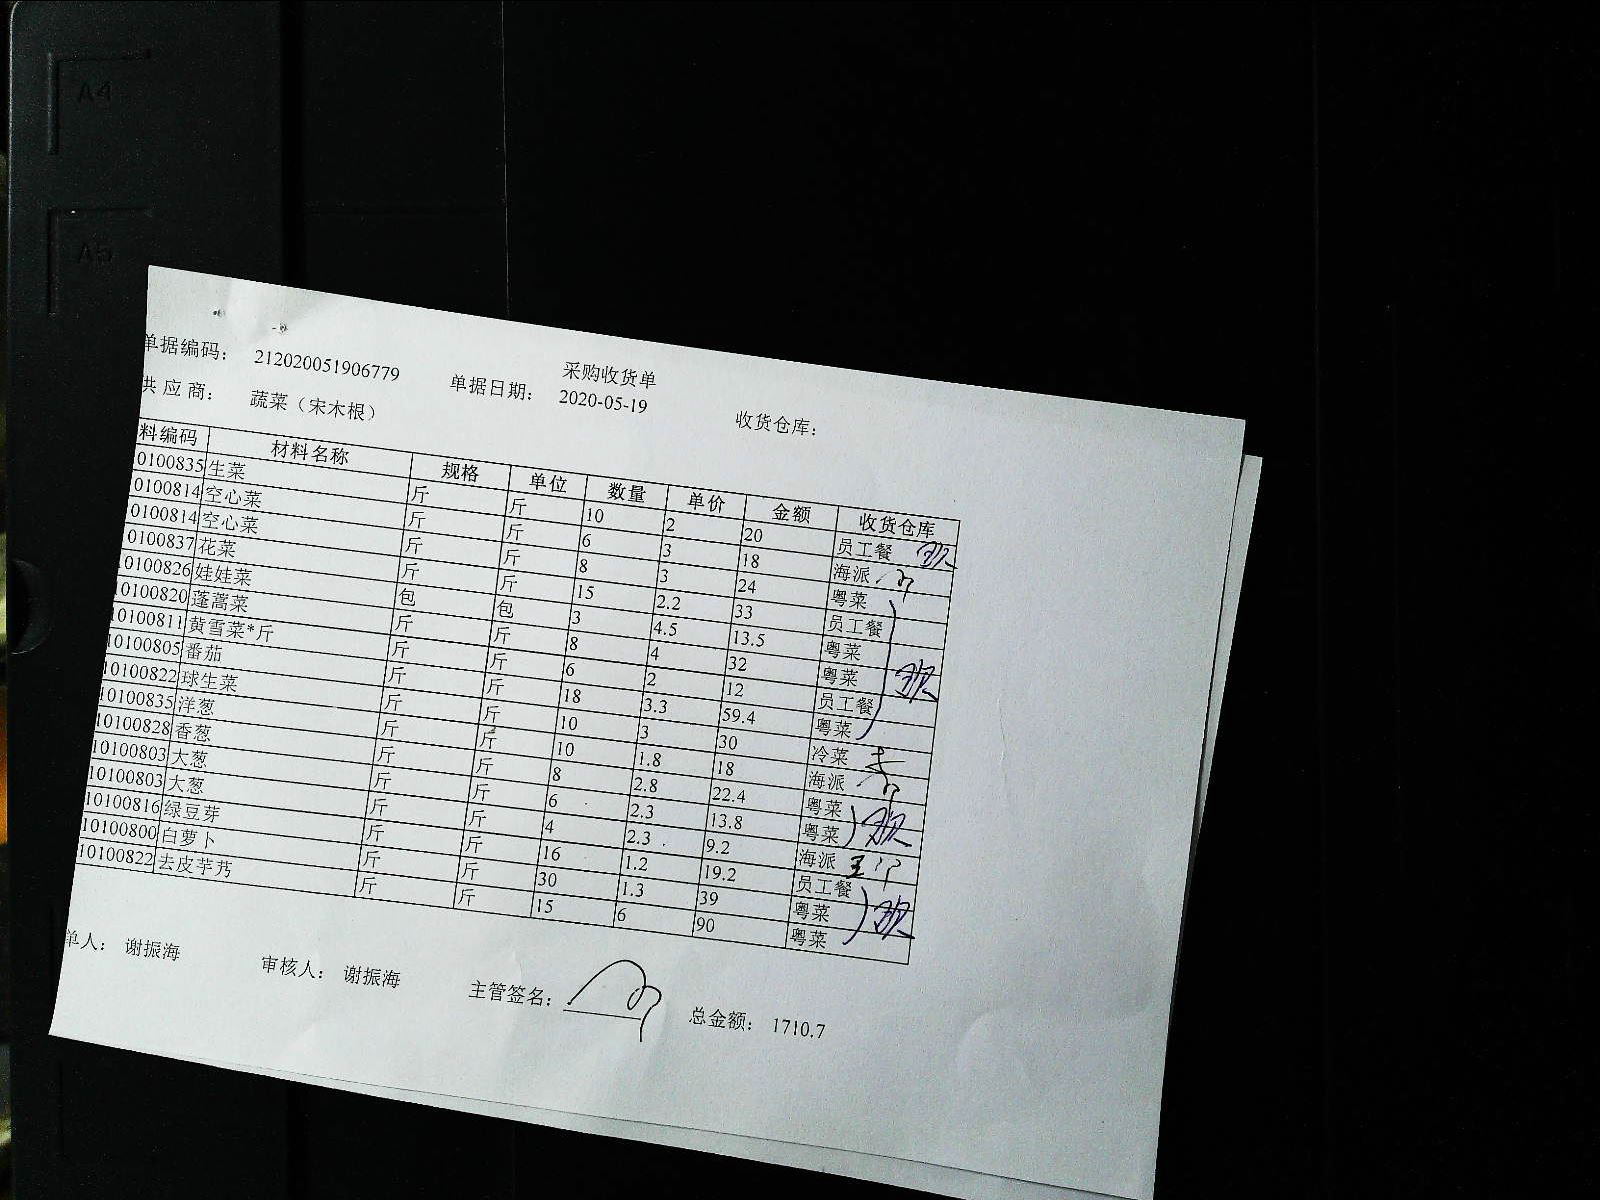 A4
A5
采购收货单
单据编码： 212020051906779 单据日期： 2020-05-19 收货仓库：
供应商： 蔬菜（宋木根）
料编码 材料名称 规格 单位 数量 单价 金额 收货仓库
0100835 生菜 斤 斤 10 2 20 员工餐
0100814 空心菜 斤 斤 6 3 18 海派
0100814 空心菜 斤 斤 8 3 24 粤菜
0100837 花菜 斤 斤 15 2.2 33 员工餐
10100826 娃娃菜 包 包 3 4.5 13.5 粤菜
10100820 蓬蒿菜 斤 斤 8 4 32 粤菜
10100811 黄雪菜*斤 斤 斤 6 2 12 员工餐
10100805 番茄 斤 斤 18 3.3 59.4 粤菜
10100822 球生菜 斤 斤 10 3 30 冷菜
10100835 洋葱 斤 斤 10 1.8 18 海派
10100828 香葱 斤 斤 8 2.8 22.4 粤菜
10100803 大葱 斤 斤 6 2.3 13.8 粤菜
10100803 大葱 斤 斤 4 2.3 9.2 海派
10100816 绿豆芽 斤 斤 16 1.2 19.2 员工餐
10100800 白萝卜 斤 斤 30 1.3 39 粤菜
10100822 去皮芋艿 斤 斤 15 6 90 粤菜
单人： 谢振海 审核人： 谢振海 主管签名： 总金额： 1710.7